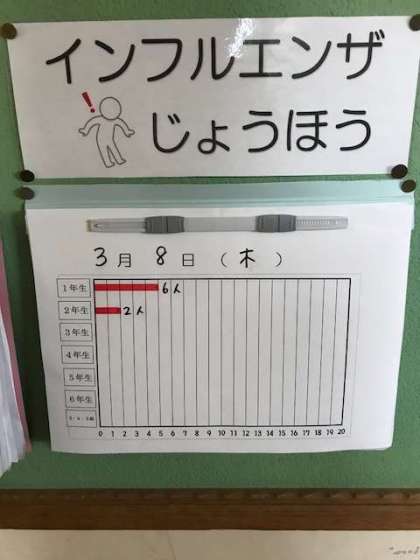 インフルエンザ
じょうほう
3月 8日 (木)
1年生 6人
2年生 2人
3年生
4年生
5年生
6年生
0 1 2 3 4 5 6 7 8 9 10 11 12 13 14 15 16 17 18 19 20